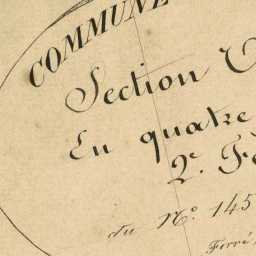 COMMUNE
Section
En quatre
2e. Fe
du No. 145
Ferré